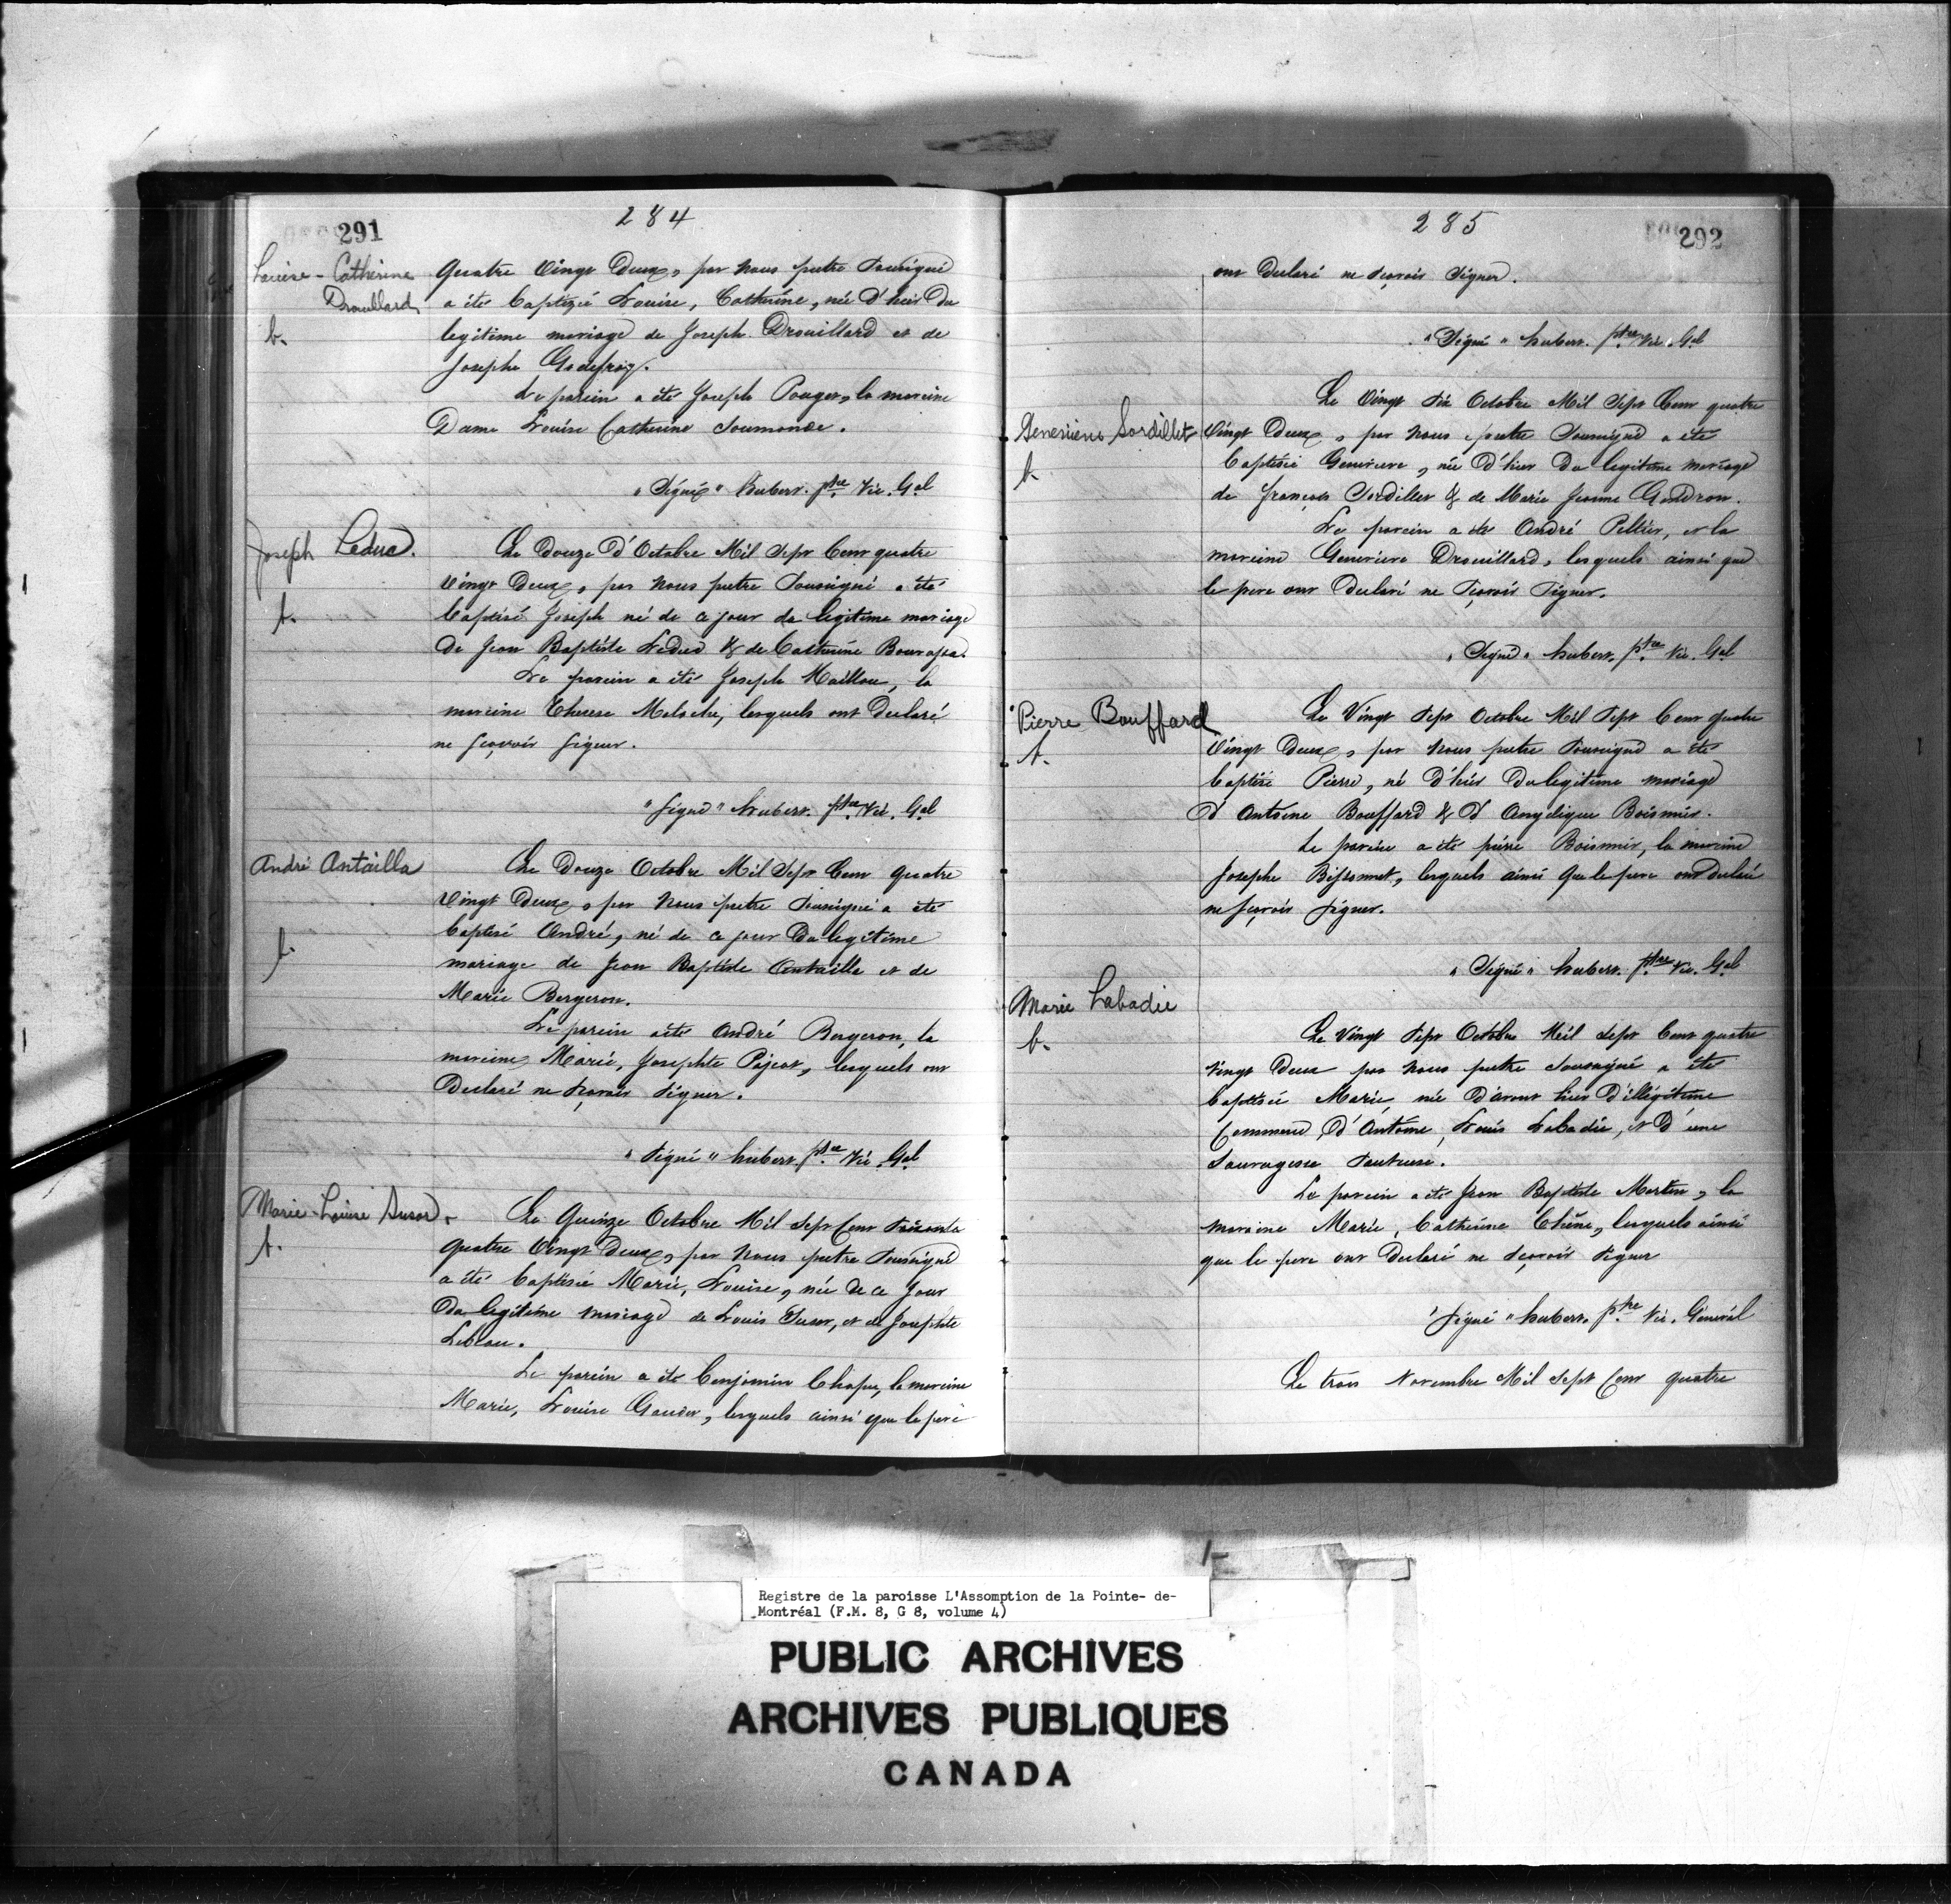 284
291
Louise-Catherine
Drouillard
b.
Quatre Vingt Deux, par nous pretre Soussigné
a été baptizée Louise, Catherine, née d'hier du
legitime mariage de Joseph Drouillard et de
Josephe Godefroy.
Le parein a été Joseph Pouget, la mareine
Dame Louise Catherine Soumande.
"Signé" hubert. ptre Vic. Gal
Joseph Leduc.
b.
Le Douze d'Octobre Mil Sept Cent quatre
Vingt Deux, par nous pretre Soussigné a été
baptisé Joseph né de ce jour du legitime mariage
de Jean Baptiste Leduc & de Catherine Bourassa.
Le parein a été Joseph Maillou, la
mareine Therese Meloche, lesquels ont declaré
ne sçavoir signer.
"Signé" hubert. ptre Vic. Gal
André Antailla
b.
Le Douze Octobre Mil Sept Cent quatre
Vingt Deux, par nous pretre Soussigné a été
baptisé André, né de ce jour du legitime
mariage de Jean Baptiste Antailla et de
Marie Bergeron.
Le parein a été André Bergeron, la
mareine Marie, Josephte Pajeot, lesquels ont
Declaré ne sçavoir signer.
"Signé" hubert. ptre Vic. Gal
Marie-Louise Susor.
b.
Le Quinze Octobre Mil Sept Cent
Quatre Vingt Deux, par nous pretre Soussigné
a été baptisée Marie, Louise, née de ce jour
du legitime mariage de Louis Susor, et de Josephte
Leblau.
Le parein a été benjamin Chapu, la mareine
Marie, Louise Gaudet, lesquels ainsi que le pere
285
292
ont Declaré ne sçavoir Signer.
"Signé" hubert. ptre Vic. Gal
Genevieve Sordillet
b.
Le Vingt Six Octobre Mil Sept Cent quatre
Vingt Deux, par nous pretre Soussigné a été
baptisée Genevieve, née d'hier du legitime mariage
de françois Sordillet & de Marie Jeanne Gendron.
Le parein a été André Peltier, et la
mareine Genevieve Drouillard, lesquels ainsi que
le pere ont Declaré ne sçavoir Signer.
"Signé" hubert. ptre Vic. Gal
Pierre Bouffard
b.
Le Vingt Sept Octobre Mil Sept Cent quatre
Vingt Deux, par nous pretre Soussigné a été
baptisé Pierre, né d'hier du legitime mariage
d'Antoine Bouffard & d'Angelique Boismier.
Le parein a été pierre Boismier, la mareine
Josephe Bissonnet, lesquels ainsi que le pere ont declaré
ne sçavoir signer.
"Signé" hubert. ptre Vic. Gal
Marie Labadie
b.
Le Vingt Sept Octobre Mil Sept Cent quatre
Vingt Deux par nous pretre Soussigné a été
baptisée Marie, née d'avant hier d'illégitime
Commerce, d'Antoine, Louis Labadie, et d'une
Sauvagesse Sauteuse.
Le parein a été Jean Baptiste Martin, la
mareine Marie, Catherine Chêne, lesquels ainsi
que le pere ont Declaré ne sçavoir Signer
"Signé" hubert. ptre Vic. Général
Le trois Novembre Mil Sept Cent quatre
Registre de la paroisse L'Assomption de la Pointe- de-
Montréal (F.M. 8, G 8, volume 4)
PUBLIC ARCHIVES
ARCHIVES PUBLIQUES
CANADA